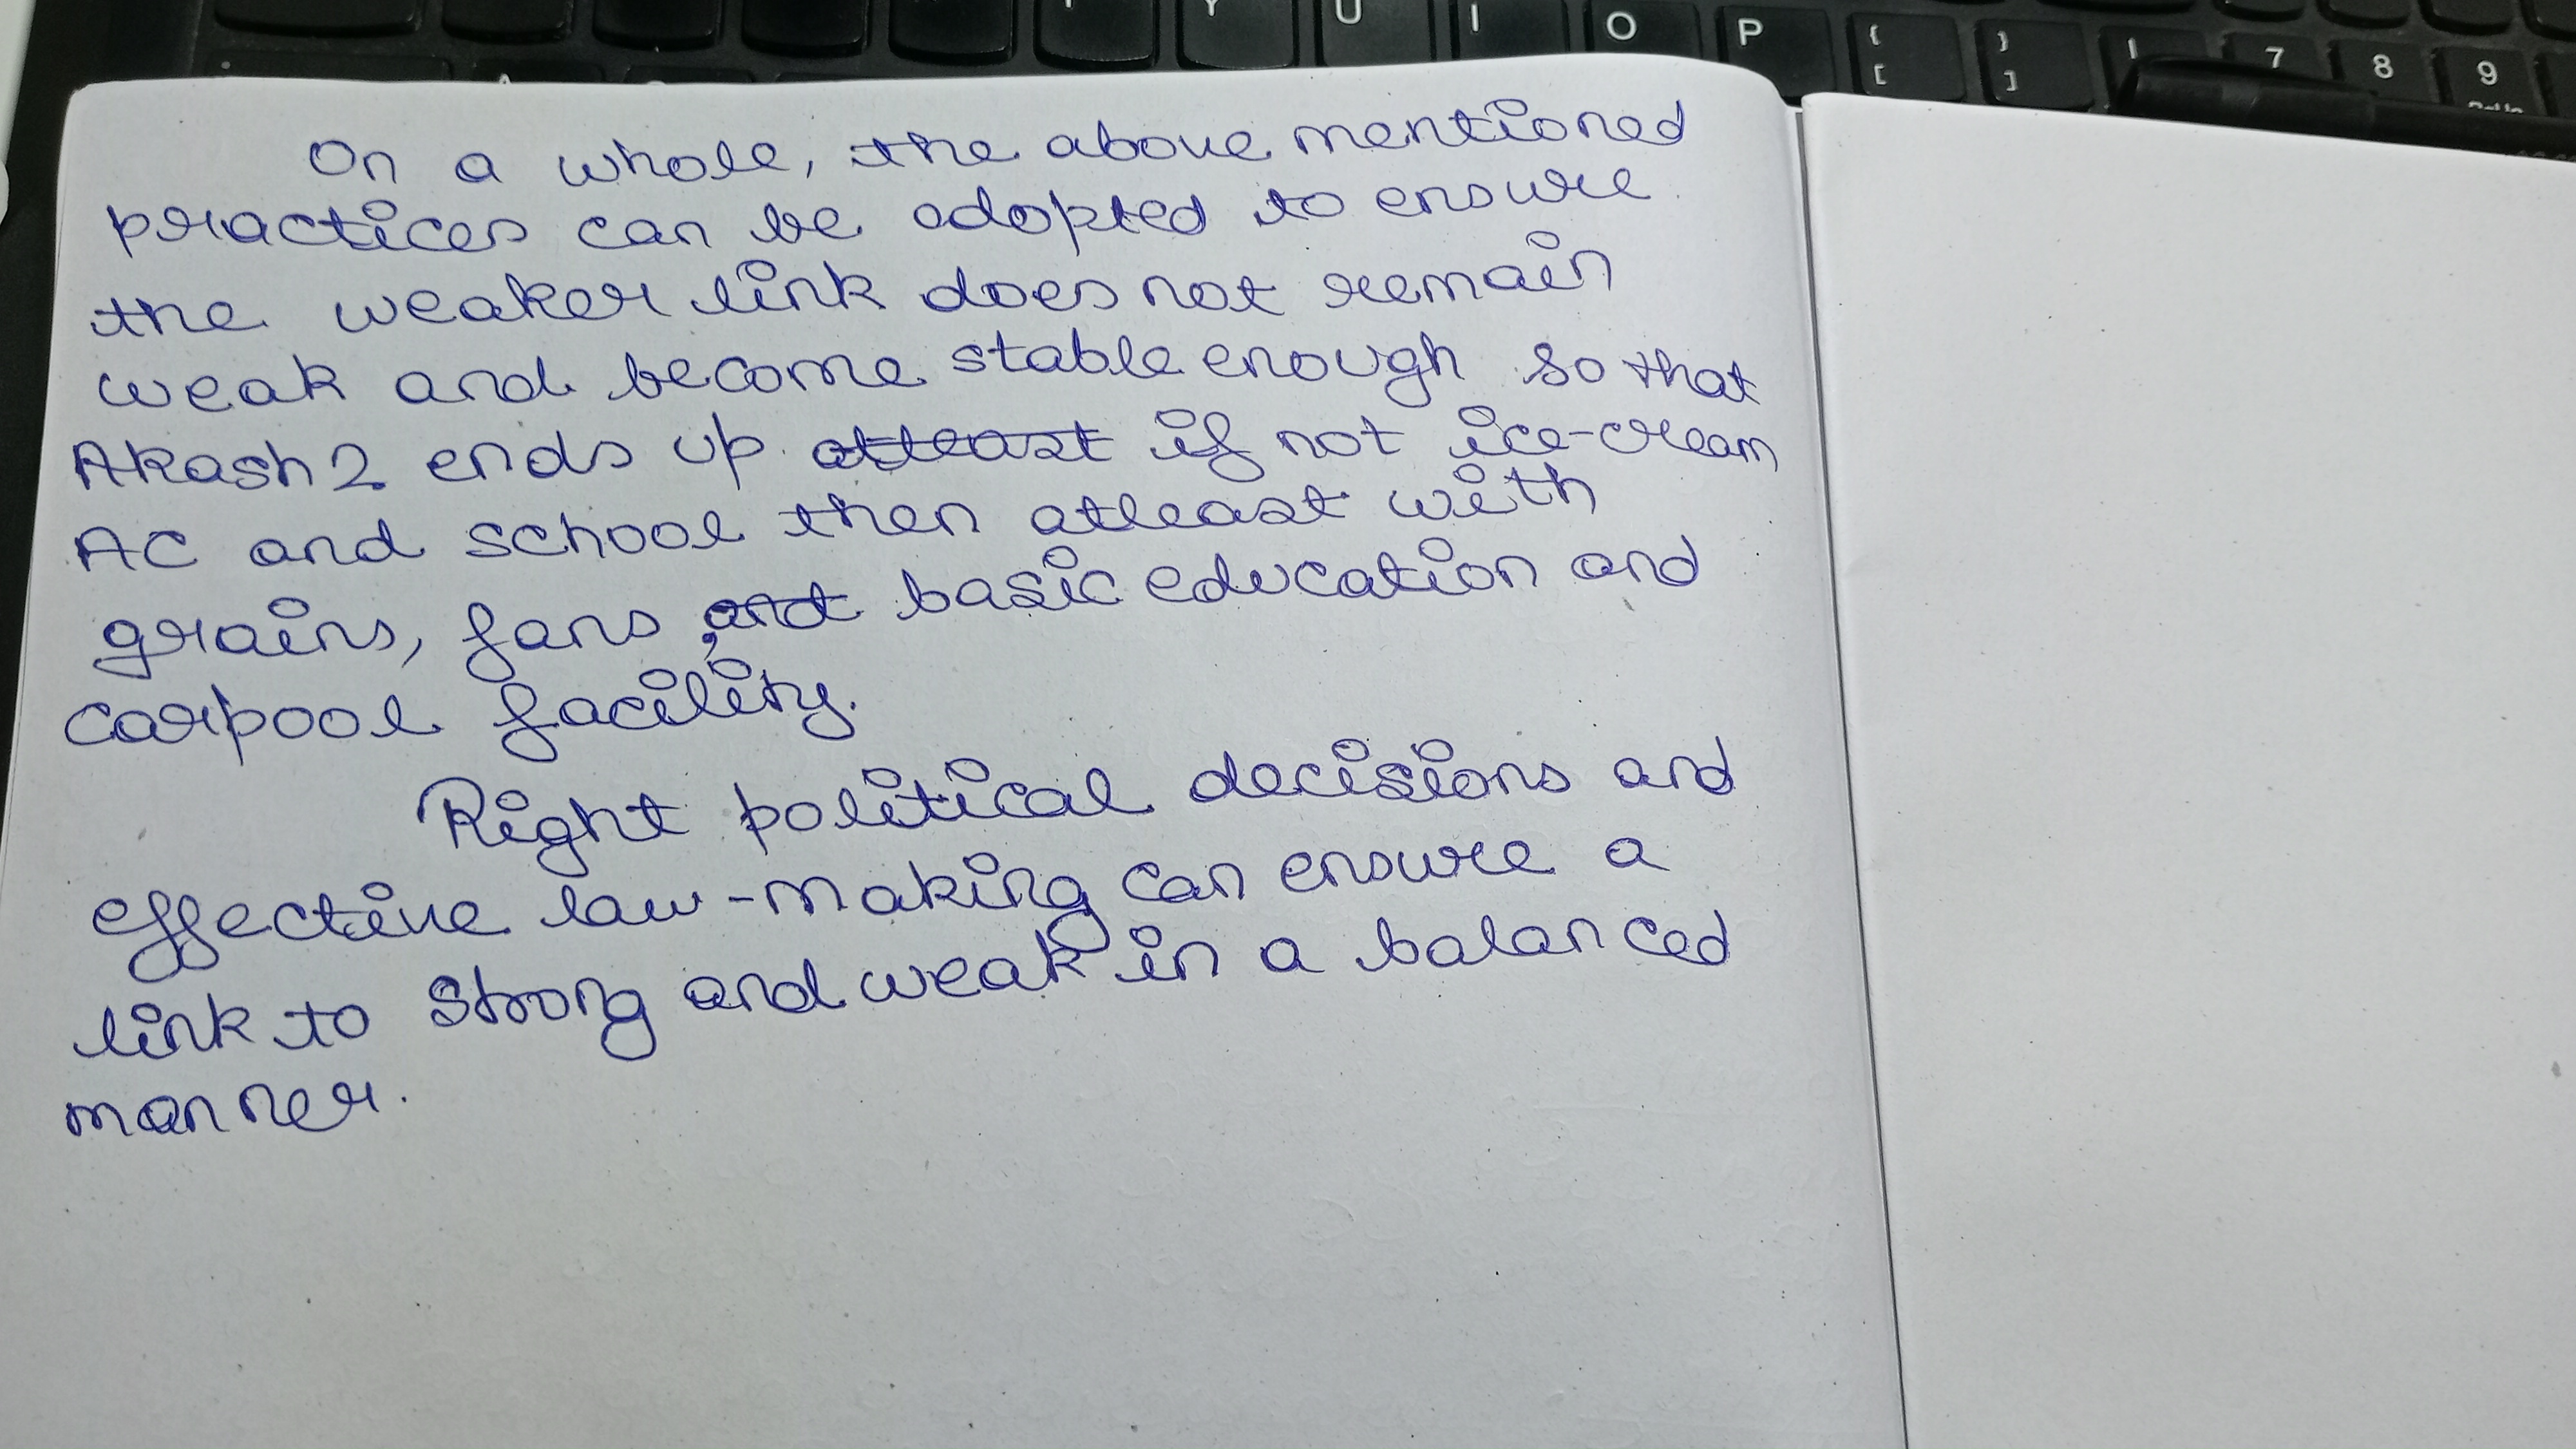 Y U I O P { [ } ] 7 8 9
On a whole, the above mentioned
practices can be adopted to ensure
the weaker link does not remain
weak and become stable enough so that
Akash 2 ends up atleast if not ice-cream
AC and school then atleast with
grains, fans, and basic education and
carpool facility.
Right political decisions and
effective law-making can ensure a
link to strong and weak in a balanced
manner.